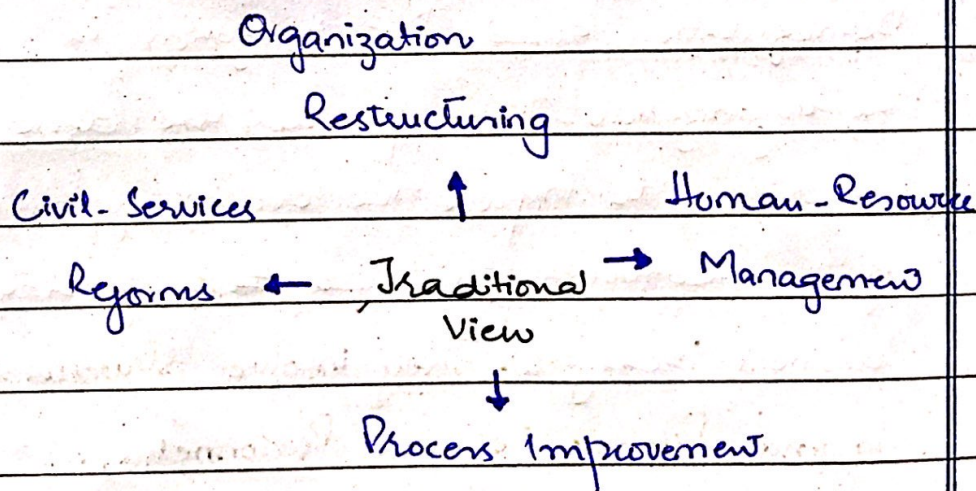 Organization
Restructuring
Civil-Services
Human-Resource
Reforms ← Traditional → Management
View
Process Improvement